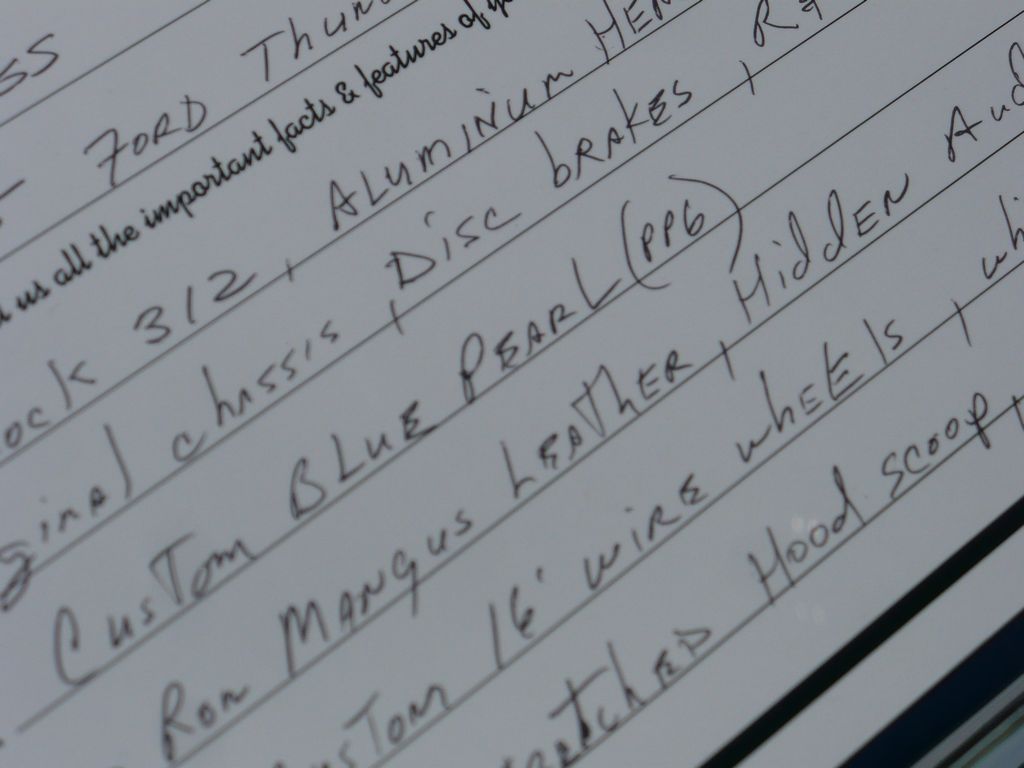 SS
FORD Thun
us all the important facts & features of
ock 312, ALUMINUM HEM
ginal chassis, Disc brakes, R&
Custom BLUE PEARL (PPG)
Ron MANGUS LEATHER, Hidden Aud
ustom 16" wire wheels, whi
atched Hood scoop,